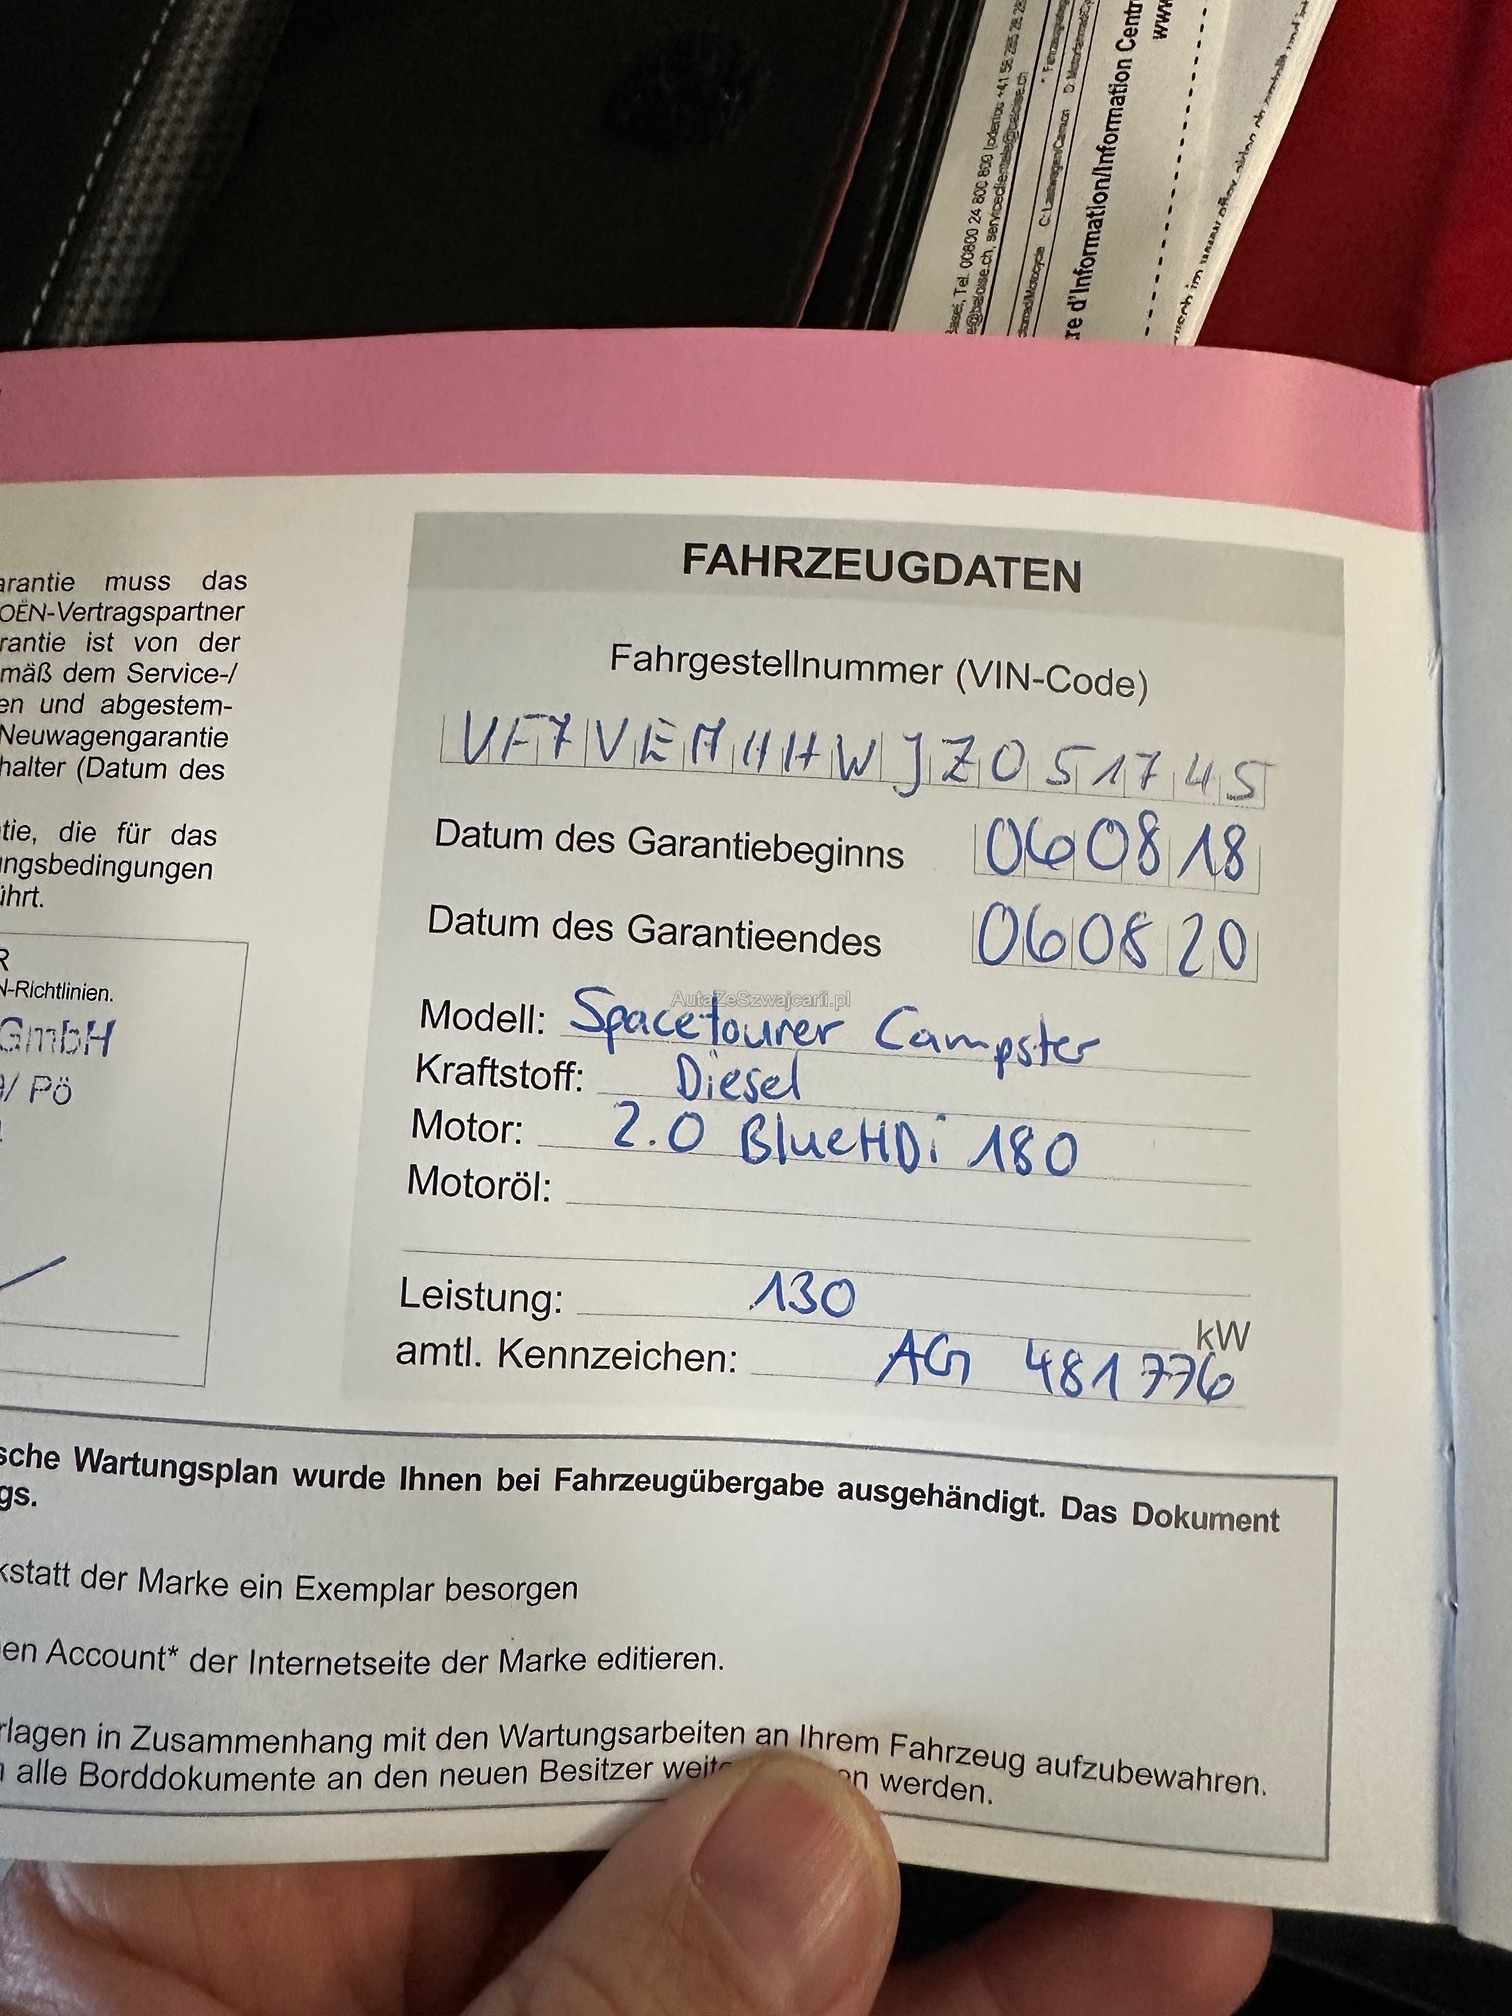 Basel, Tel. 00800 24 800 800
serviceclientele@baloise.ch
C: Lastwagen/Camion
re d'Information/Information Centr
www
FAHRZEUGDATEN
Fahrgestellnummer (VIN-Code)
VF7VEAHHWJZ051745
Datum des Garantiebeginns 060818
Datum des Garantieendes 060820
Modell: Spacetourer Campster
Kraftstoff: Diesel
Motor: 2.0 BlueHDi 180
Motoröl:
Leistung: 130 kW
amtl. Kennzeichen: AG 481776
AutaZeSzwajcarii.pl
arantie muss das
OËN-Vertragspartner
rantie ist von der
mäß dem Service-/
en und abgestem-
Neuwagengarantie
halter (Datum des
tie, die für das
ngsbedingungen
ührt.
R
N-Richtlinien.
GmbH
/ Pö
sche Wartungsplan wurde Ihnen bei Fahrzeugübergabe ausgehändigt. Das Dokument
gs.
kstatt der Marke ein Exemplar besorgen
en Account* der Internetseite der Marke editieren.
rlagen in Zusammenhang mit den Wartungsarbeiten an Ihrem Fahrzeug aufzubewahren.
alle Borddokumente an den neuen Besitzer weite en werden.